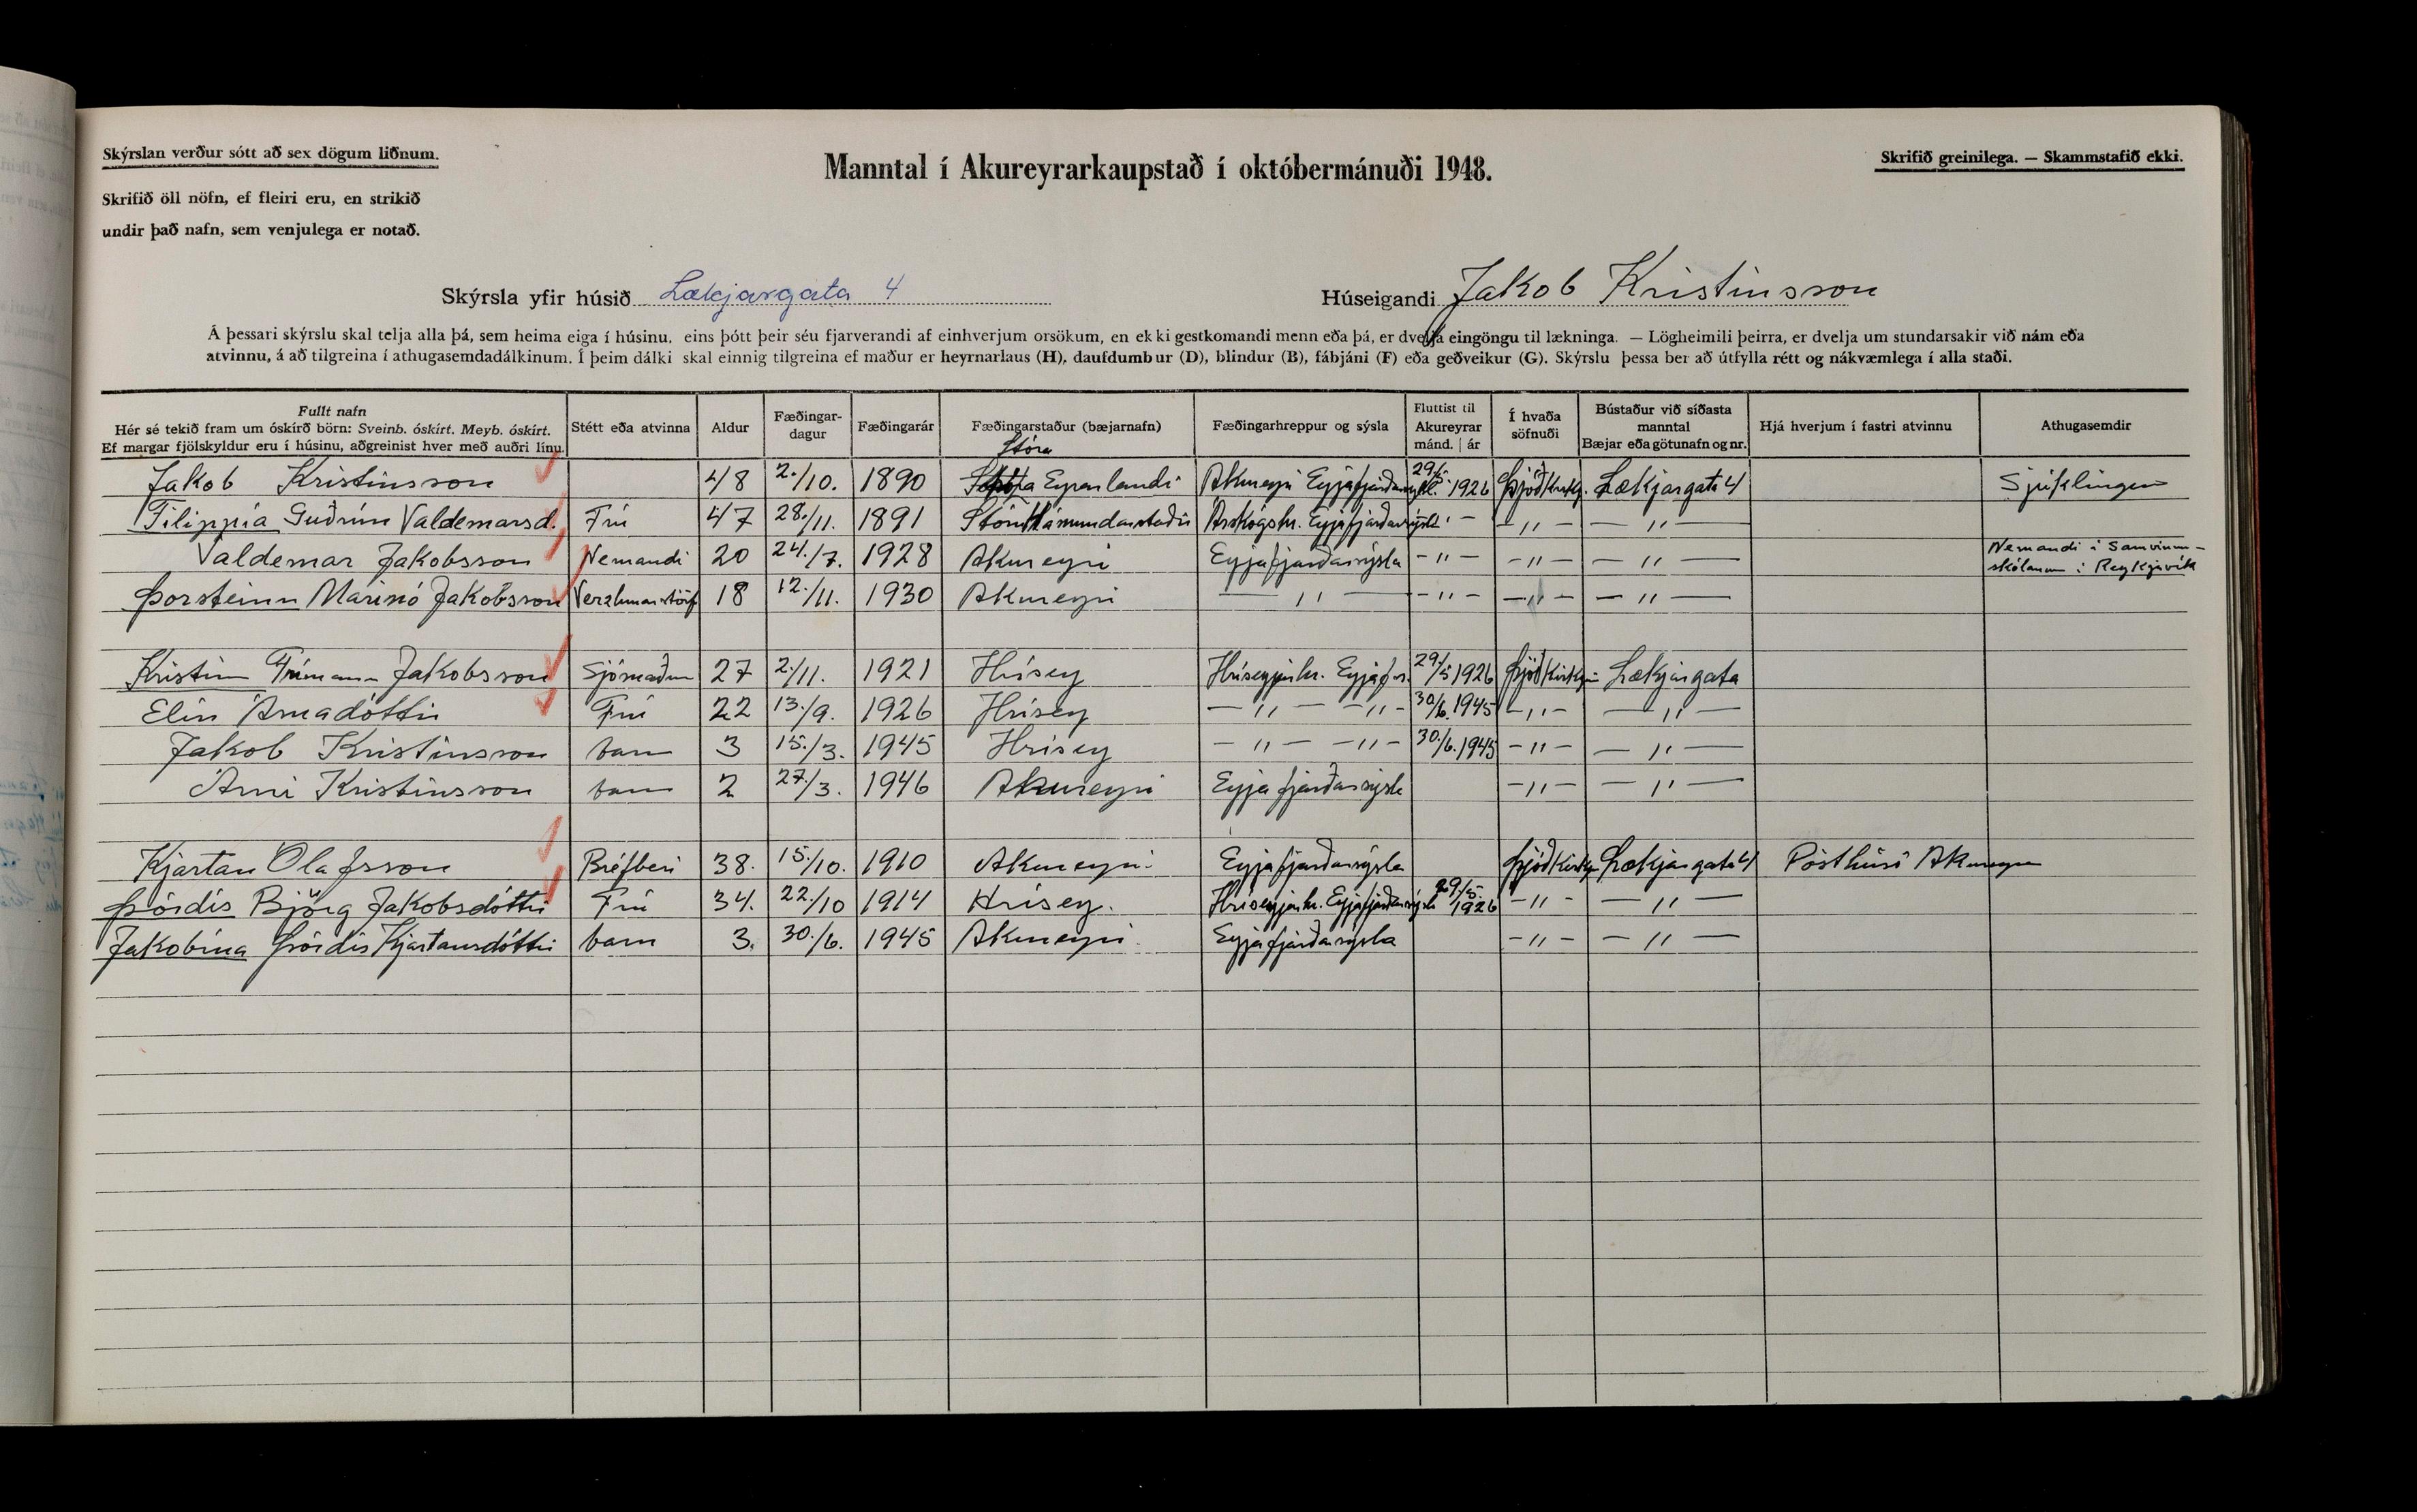 Skýrslan verður sótt að sex dögum liðnum.
Manntal í Akureyrarkaupstað í októbermánuði 1948.
Skrifið greinilega. — Skammstafið ekki.
Skrifið öll nöfn, ef fleiri eru, en strikið
undir það nafn, sem venjulega er notað.
Skýrsla yfir húsið Lækjargata 4 Húseigandi Jakob Kristinsson
Á þessari skýrslu skal telja alla þá, sem heima eiga í húsinu, eins þótt þeir séu fjarverandi af einhverjum orsökum, en ekki gestkomandi menn eða þá, er dvelja eingöngu til lækninga. — Lögheimili þeirra, er dvelja um stundarsakir við nám eða
atvinnu, á að tilgreina í athugasemdadálkinum. Í þeim dálki skal einnig tilgreina ef maður er heyrnarlaus (H), daufdumbur (D), blindur (B), fábjáni (F) eða geðveikur (G). Skýrslu þessa ber að útfylla rétt og nákvæmlega í alla staði.
Fullt nafn
Hér sé tekið fram um óskírð börn: Sveinb. óskírt. Meyb. óskírt.
Ef margar fjölskyldur eru í húsinu, aðgreinist hver með auðri línu.
Stétt eða atvinna
Aldur
Fæðingar-
dagur
Fæðingarár
Fæðingarstaður (bæjarnafn)
Fæðingarhreppur og sýsla
Fluttist til
Akureyrar
mánd. | ár
Í hvaða
söfnuði
Bústaður við síðasta
manntal
Bæjar eða götunafn og nr.
Hjá hverjum í fastri atvinnu
Athugasemdir
Stóra
Jakob Kristinsson 48 2./10. 1890 Eyrarlandi Akureyri Eyjafjarðarsýsl. 29/5 1926 Þjóðkirkj. Lækjargata 4 Sjúklingur
Filippía Guðrún Valdemarsd. Frú 47 28./11. 1891 Stóru Hámundarstaðir Árskógshr. Eyjafjarðarsýsla - " - - " - — " —
Valdemar Jakobsson Nemandi 20 24./7. 1928 Akureyri Eyjafjarðarsýsla - " - - " - — " — Nemandi í Samvinnu-
skólanum í Reykjavík
Þorsteinn Marinó Jakobsson Verzlunarstörf 18 12./11. 1930 Akureyri — " — - " - - " - — " —
Kristinn Jakobsson Sjómaður 27 2./11. 1921 Hrísey Hríseyjarhr. Eyjafj.s. 29/5 1926 Þjóðkirkj. Lækjargata
Elín Árnadóttir Frú 22 13./9. 1926 Hrísey — " — — " — 30/6. 1945 - " - — " —
Jakob Kristinsson barn 3 15./3. 1945 Hrísey — " — — " — 30./6. 1945 - " - — " —
Árni Kristinsson barn 2 27/3. 1946 Akureyri Eyjafjarðarsýsla - " - — " —
Kjartan Ólafsson Bréfberi 38. 15./10. 1910 Akureyri. Eyjafjarðarsýsla Þjóðkirkj. Lækjargata 4 Pósthúsi Akureyri
Þórdís Björg Jakobsdóttir Frú 34. 22./10 1914 Hrísey. Hríseyjarhr. Eyjafjarðarsýsla 29/5. 1926 - " - — " —
Jakobína Þórdís Kjartansdóttir barn 3. 30./6. 1945 Akureyri. Eyjafjarðarsýsla - " - — " —